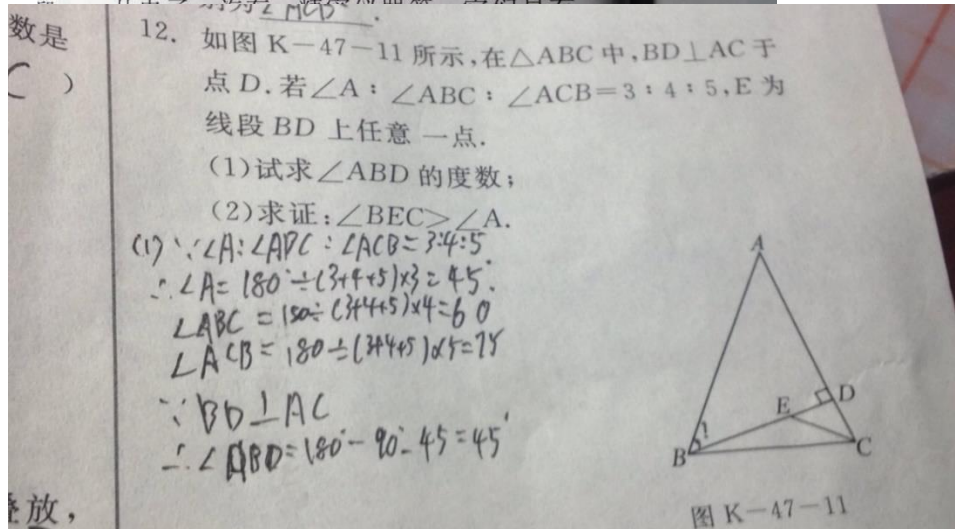 数是
( )
12. 如图 K-47-11 所示,在△ABC 中,BD⊥AC 于
点 D.若∠A:∠ABC:∠ACB=3:4:5,E 为
线段 BD 上任意一点.
(1)试求∠ABD 的度数;
(2)求证:∠BEC>∠A.
(1) ∵∠A:∠ABC:∠ACB=3:4:5
∴∠A=180°÷(3+4+5)×3=45°.
∠ABC=180÷(3+4+5)×4=60
∠ACB=180÷(3+4+5)×5=75
∵BD⊥AC
∴∠ABD=180°-90°-45=45°
A
D
E
B
1
C
图 K-47-11
叠放,